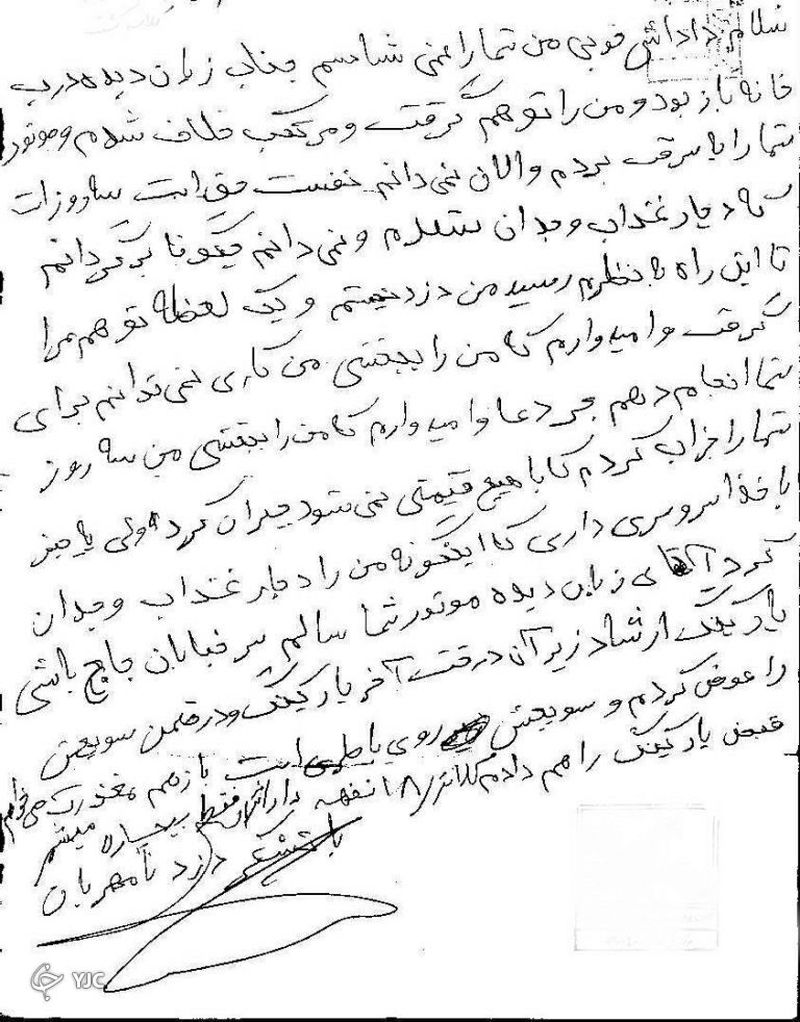 سلام داداش خوبی من شما را نمی شناسم جناب زیان دیده درب
خانه باز بود و من را توهم گرفت و مرتکب خلاف شدم و موتور
شما را با سرقت بردم و الان نمی دانم حق است سه روز است
که دچار عذاب وجدان شدم و نمی دانم چگونا برگردانم
تا این راه به نظرم رسید من دزد نیستم و یک لحظه توهم مرا
گرفت و امیدوارم کا من را ببخشی من کاری نمی توانم برای
شما انجام دهم جز دعا و امیدوارم کا من را ببخشی من سه روز
شما را خراب کردم کا با هیچ قیمتی نمی شود جبران کرد ولی یه چیز
با خدا سر و سری داری کا اینگونه من را دچار عذاب وجدان
کرد آقای زیان دیده موتور شما سالم سر خیابان باشی
پارکینگ ارشاد زیر آن درخت آخر پارکینگ و در ضمن سویچش
را عوض کردم و سویچش روی باطری است بازهم معذرت می خوام
قبض پارکینگ را هم دادم کلانتری ۱۸ نفهمه داداش فقط بیچاره میشم
با تشکر دزد نامهربان
YJC